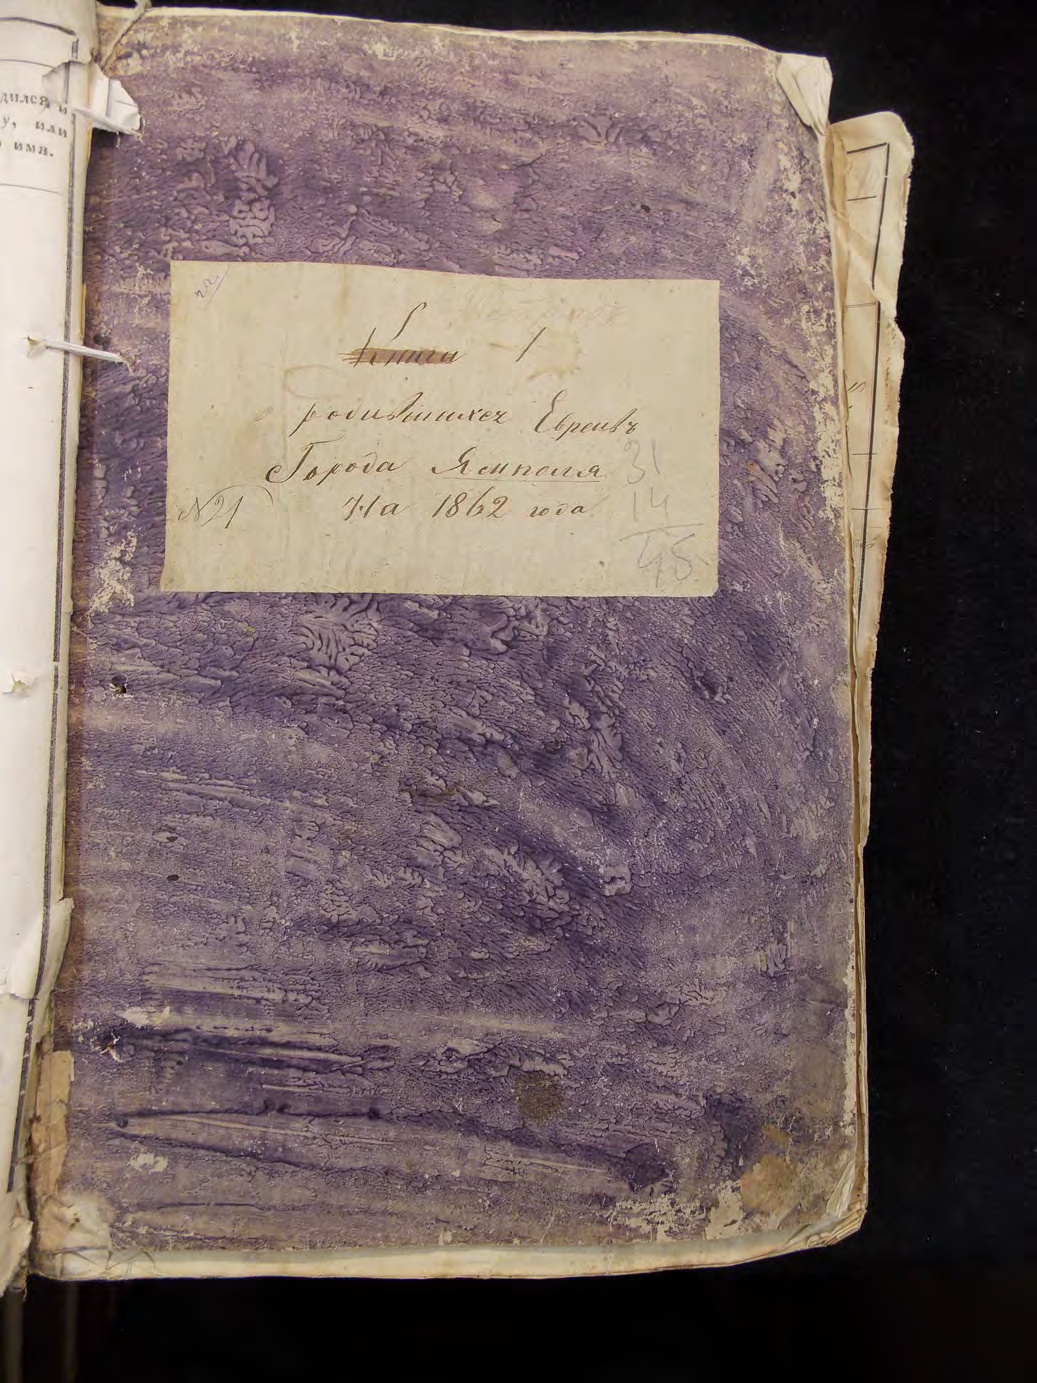 дился и
у, или
имя.
Книга 1
родившихся Евреевъ
Города Ямполя 31
№21 На 1862 года 14
45